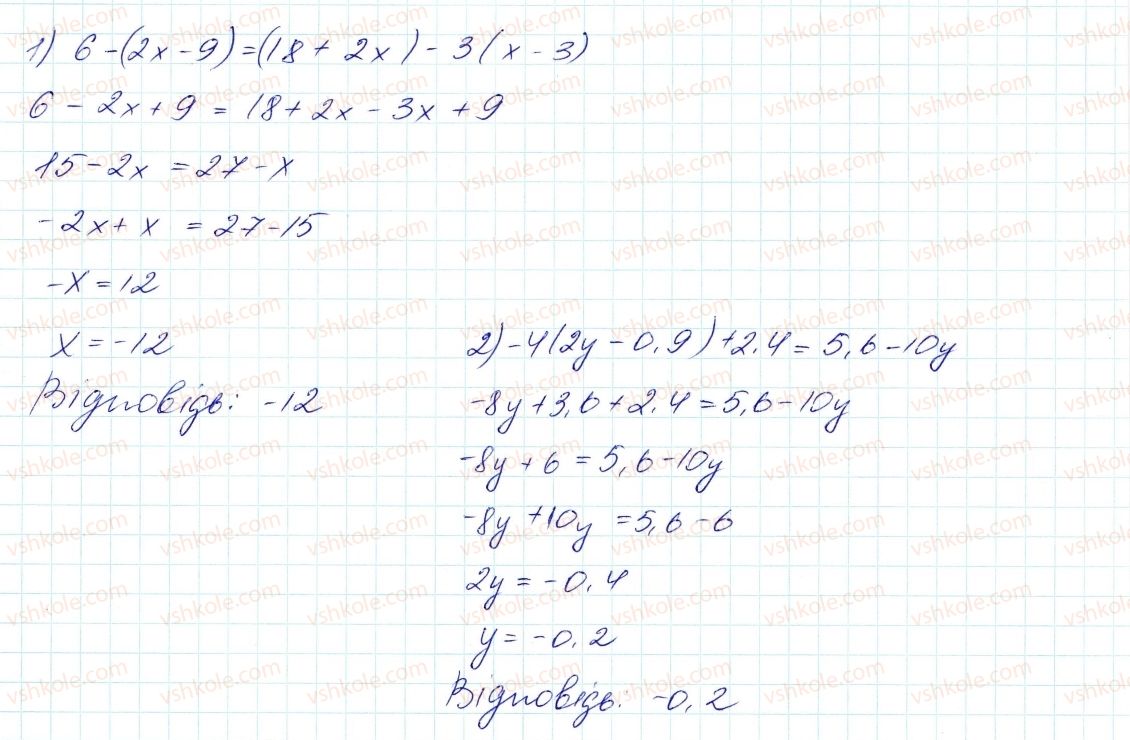 1) 6 - (2x - 9) = (18 + 2x) - 3(x - 3)
6 - 2x + 9 = 18 + 2x - 3x + 9
15 - 2x = 27 - x
-2x + x = 27 - 15
-x = 12
x = -12
Відповідь: -12
2) -4(2y - 0,9) + 2,4 = 5,6 - 10y
-8y + 3,6 + 2,4 = 5,6 - 10y
-8y + 6 = 5,6 - 10y
-8y + 10y = 5,6 - 6
2y = -0,4
y = -0,2
Відповідь: -0,2
vshkole.com